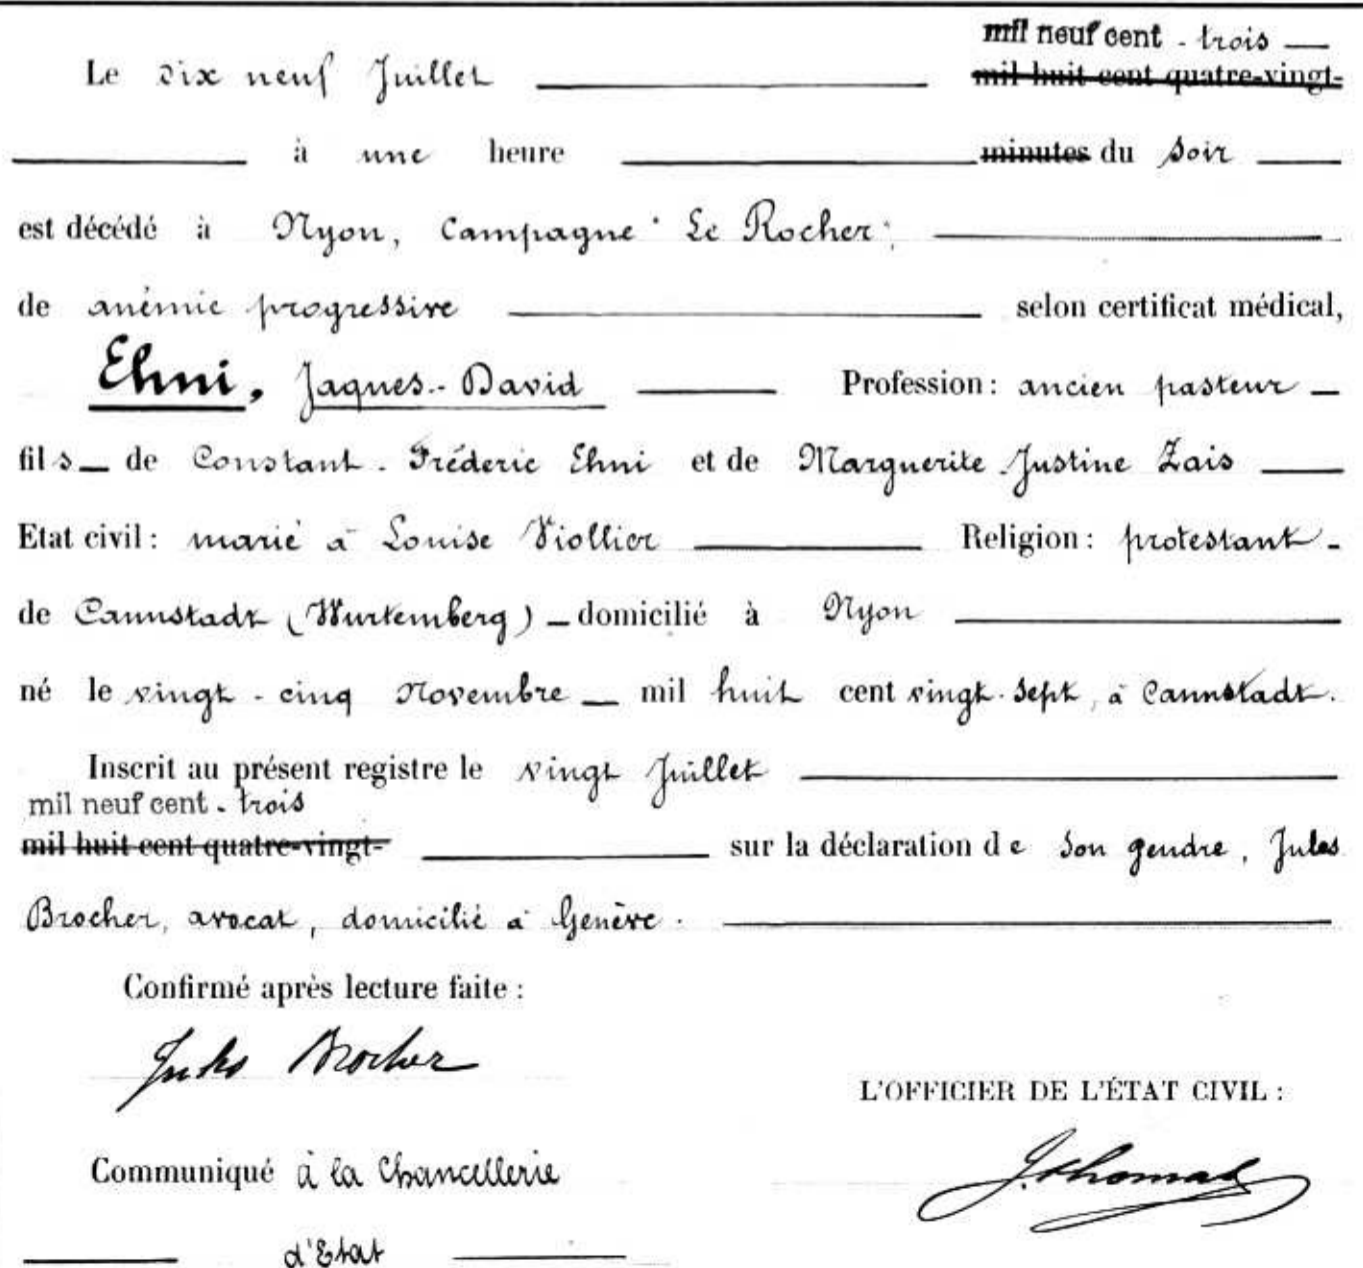 mil neuf cent - trois —
Le dix neuf Juillet ——— mil huit cent quatre-vingt-
——— à une heure ——— minutes du soir ——
est décédé à Nyon, Campagne "Le Rocher", ———
de anémie progressive ——— selon certificat médical,
Ehni, Jaques-David ——— Profession: ancien pasteur —
fils — de Constant-Fréderic Ehni et de Marguerite-Justine Zais ——
Etat civil: marié à Louise Viollier ——— Religion: protestant -
de Cannstadt (Wurtemberg) — domicilié à Nyon ———
né le vingt-cinq Novembre — mil huit cent vingt-sept, à Cannstadt.
Inscrit au présent registre le vingt Juillet ———
mil neuf cent - trois
mil huit cent quatre-vingt- ——— sur la déclaration de son gendre, Jules
Brocher, avocat, domicilié à Genève. ———
Confirmé après lecture faite:
Jules Brocher
L'OFFICIER DE L'ÉTAT CIVIL:
J. Thomas
Communiqué à la Chancellerie
——— d'Etat ———